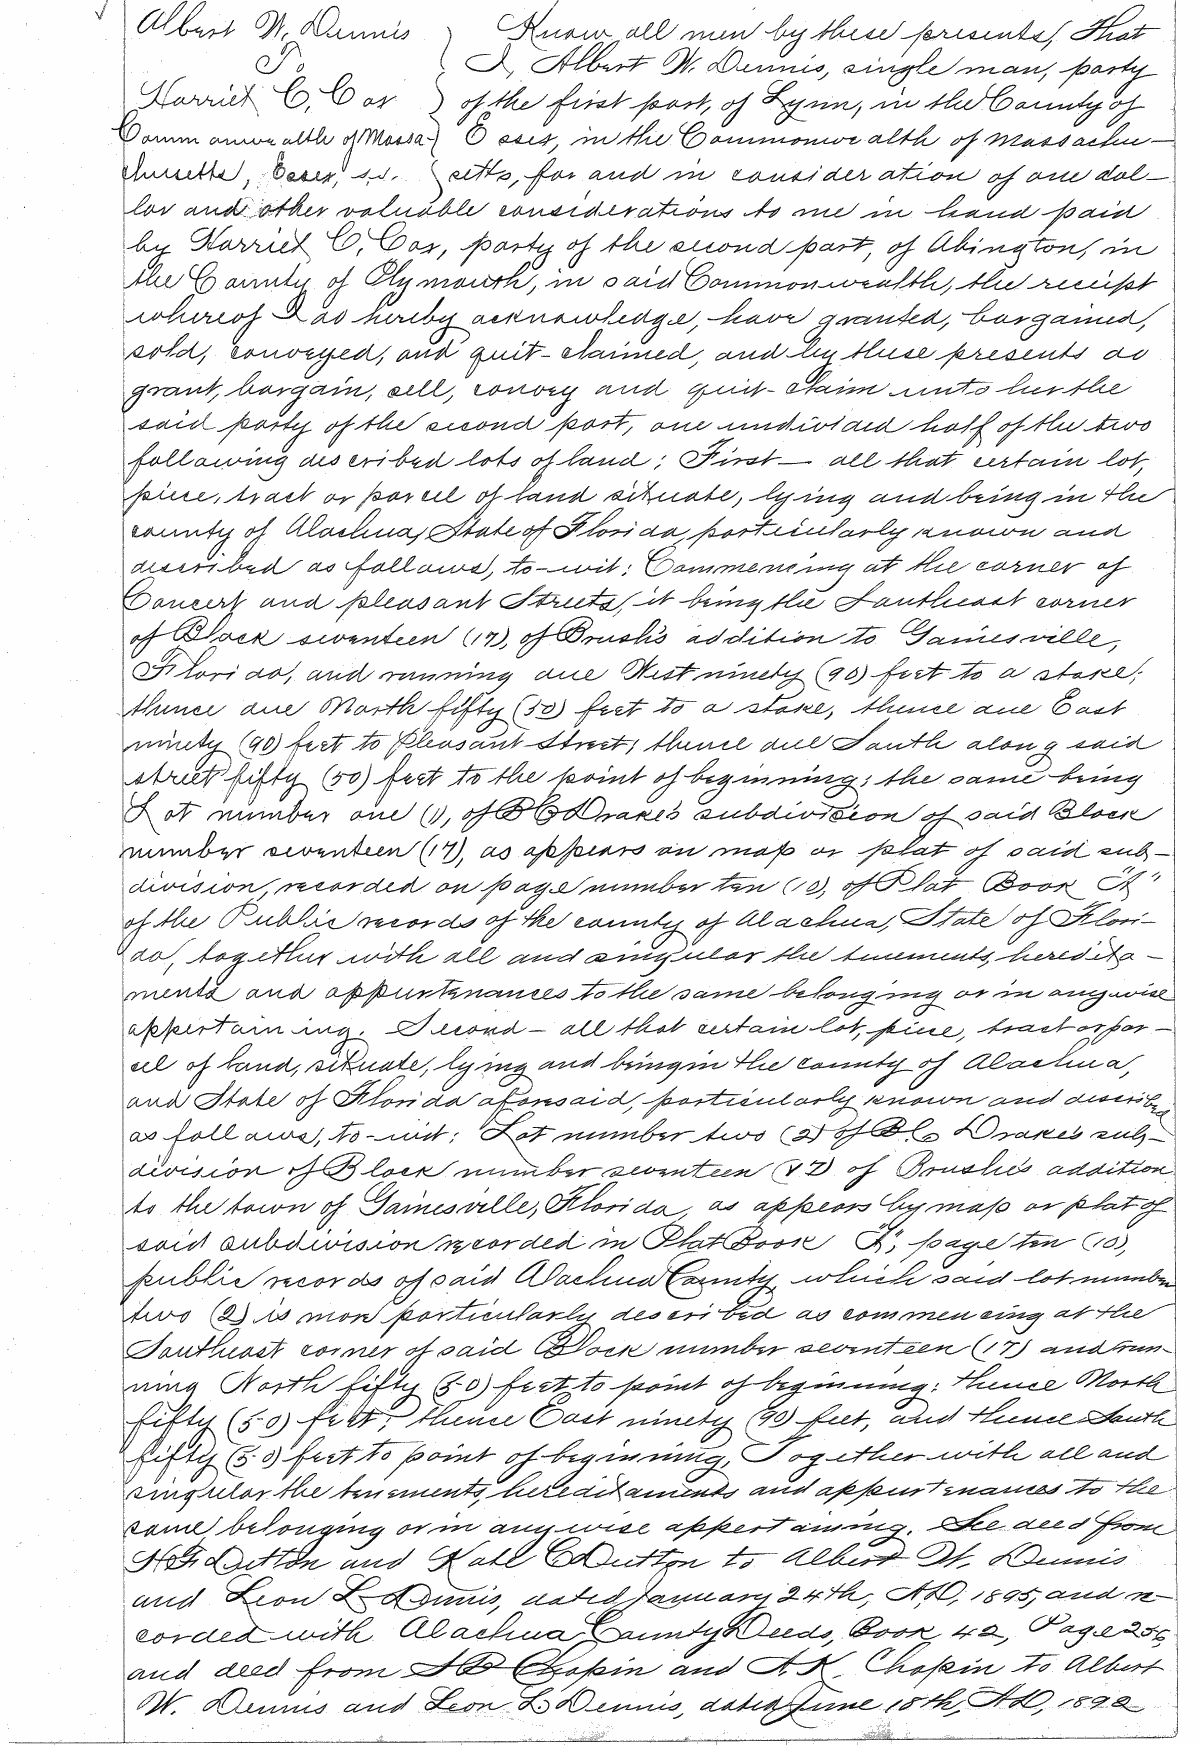 Albert W. Dennis } Know all men by these presents, That
To } I, Albert W. Dennis, single man, party
Harriet C. Cox } of the first part, of Lynn, in the County of
Commonwealth of Massa- } Essex, in the Commonwealth of Massachu-
chusetts, Essex, s.s. } setts, for and in consideration of one dol-
lar and other valuable considerations to me in hand paid
by Harriet C. Cox, party of the second part, of Abington, in
the County of Plymouth, in said Commonwealth, the receipt
whereof I do hereby acknowledge, have granted, bargained,
sold, conveyed, and quit-claimed, and by these presents do
grant, bargain, sell, convey and quit-claim unto her the
said party of the second part, one undivided half of the two
following described lots of land: First— all that certain lot,
piece, tract or parcel of land situate, lying and being in the
county of Alachua, State of Florida, particularly known and
described as follows, to-wit: Commencing at the corner of
Concert and pleasant Streets, it being the Southeast corner
of Block seventeen (17), of Brush's addition to Gainesville,
Florida, and running due West ninety (90) feet to a stake;
thence due North fifty (50) feet to a stake, thence due East
ninety (90) feet to Pleasant Street; thence due South along said
street fifty (50) feet to the point of beginning; the same being
Lot number one (1), of B C Drake's subdivision of said Block
number seventeen (17), as appears on map or plat of said sub-
division, recorded on page number ten (10), of Plat Book "A"
of the Public records of the county of Alachua, State of Flori-
da, together with all and singular the tenements, heredita-
ments and appurtenances to the same belonging or in anywise
appertaining. Second— all that certain lot, piece, tract or par-
cel of land, situate, lying and being in the county of Alachua,
and State of Florida aforesaid, particularly known and described
as follows, to-wit: Lot number two (2) of B C Drake's sub-
division of Block number seventeen (17) of Brushe's addition
to the town of Gainesville, Florida, as appears by map or plat of
said subdivision recorded in Plat Book "A", page ten (10),
public records of said Alachua County, which said lot number
two (2) is more particularly described as commencing at the
Southeast corner of said Block number seventeen (17) and run-
ning North fifty (50) feet to point of beginning; thence North
fifty (50) feet; thence East ninety (90) feet, and thence South
fifty (50) feet to point of beginning, Together with all and
singular the tenements, hereditaments and appurtenances to the
same belonging or in anywise appertaining. See deed from
H F Dutton and Kate C Dutton to Albert W. Dennis
and Leon L Dennis, dated January 24th, A.D, 1895, and re-
corded with Alachua County Deeds, Book 42, Page 256,
and deed from Chapin and A. K. Chapin to Albert
W. Dennis and Leon L. Dennis, dated June 18th, A.D, 1892